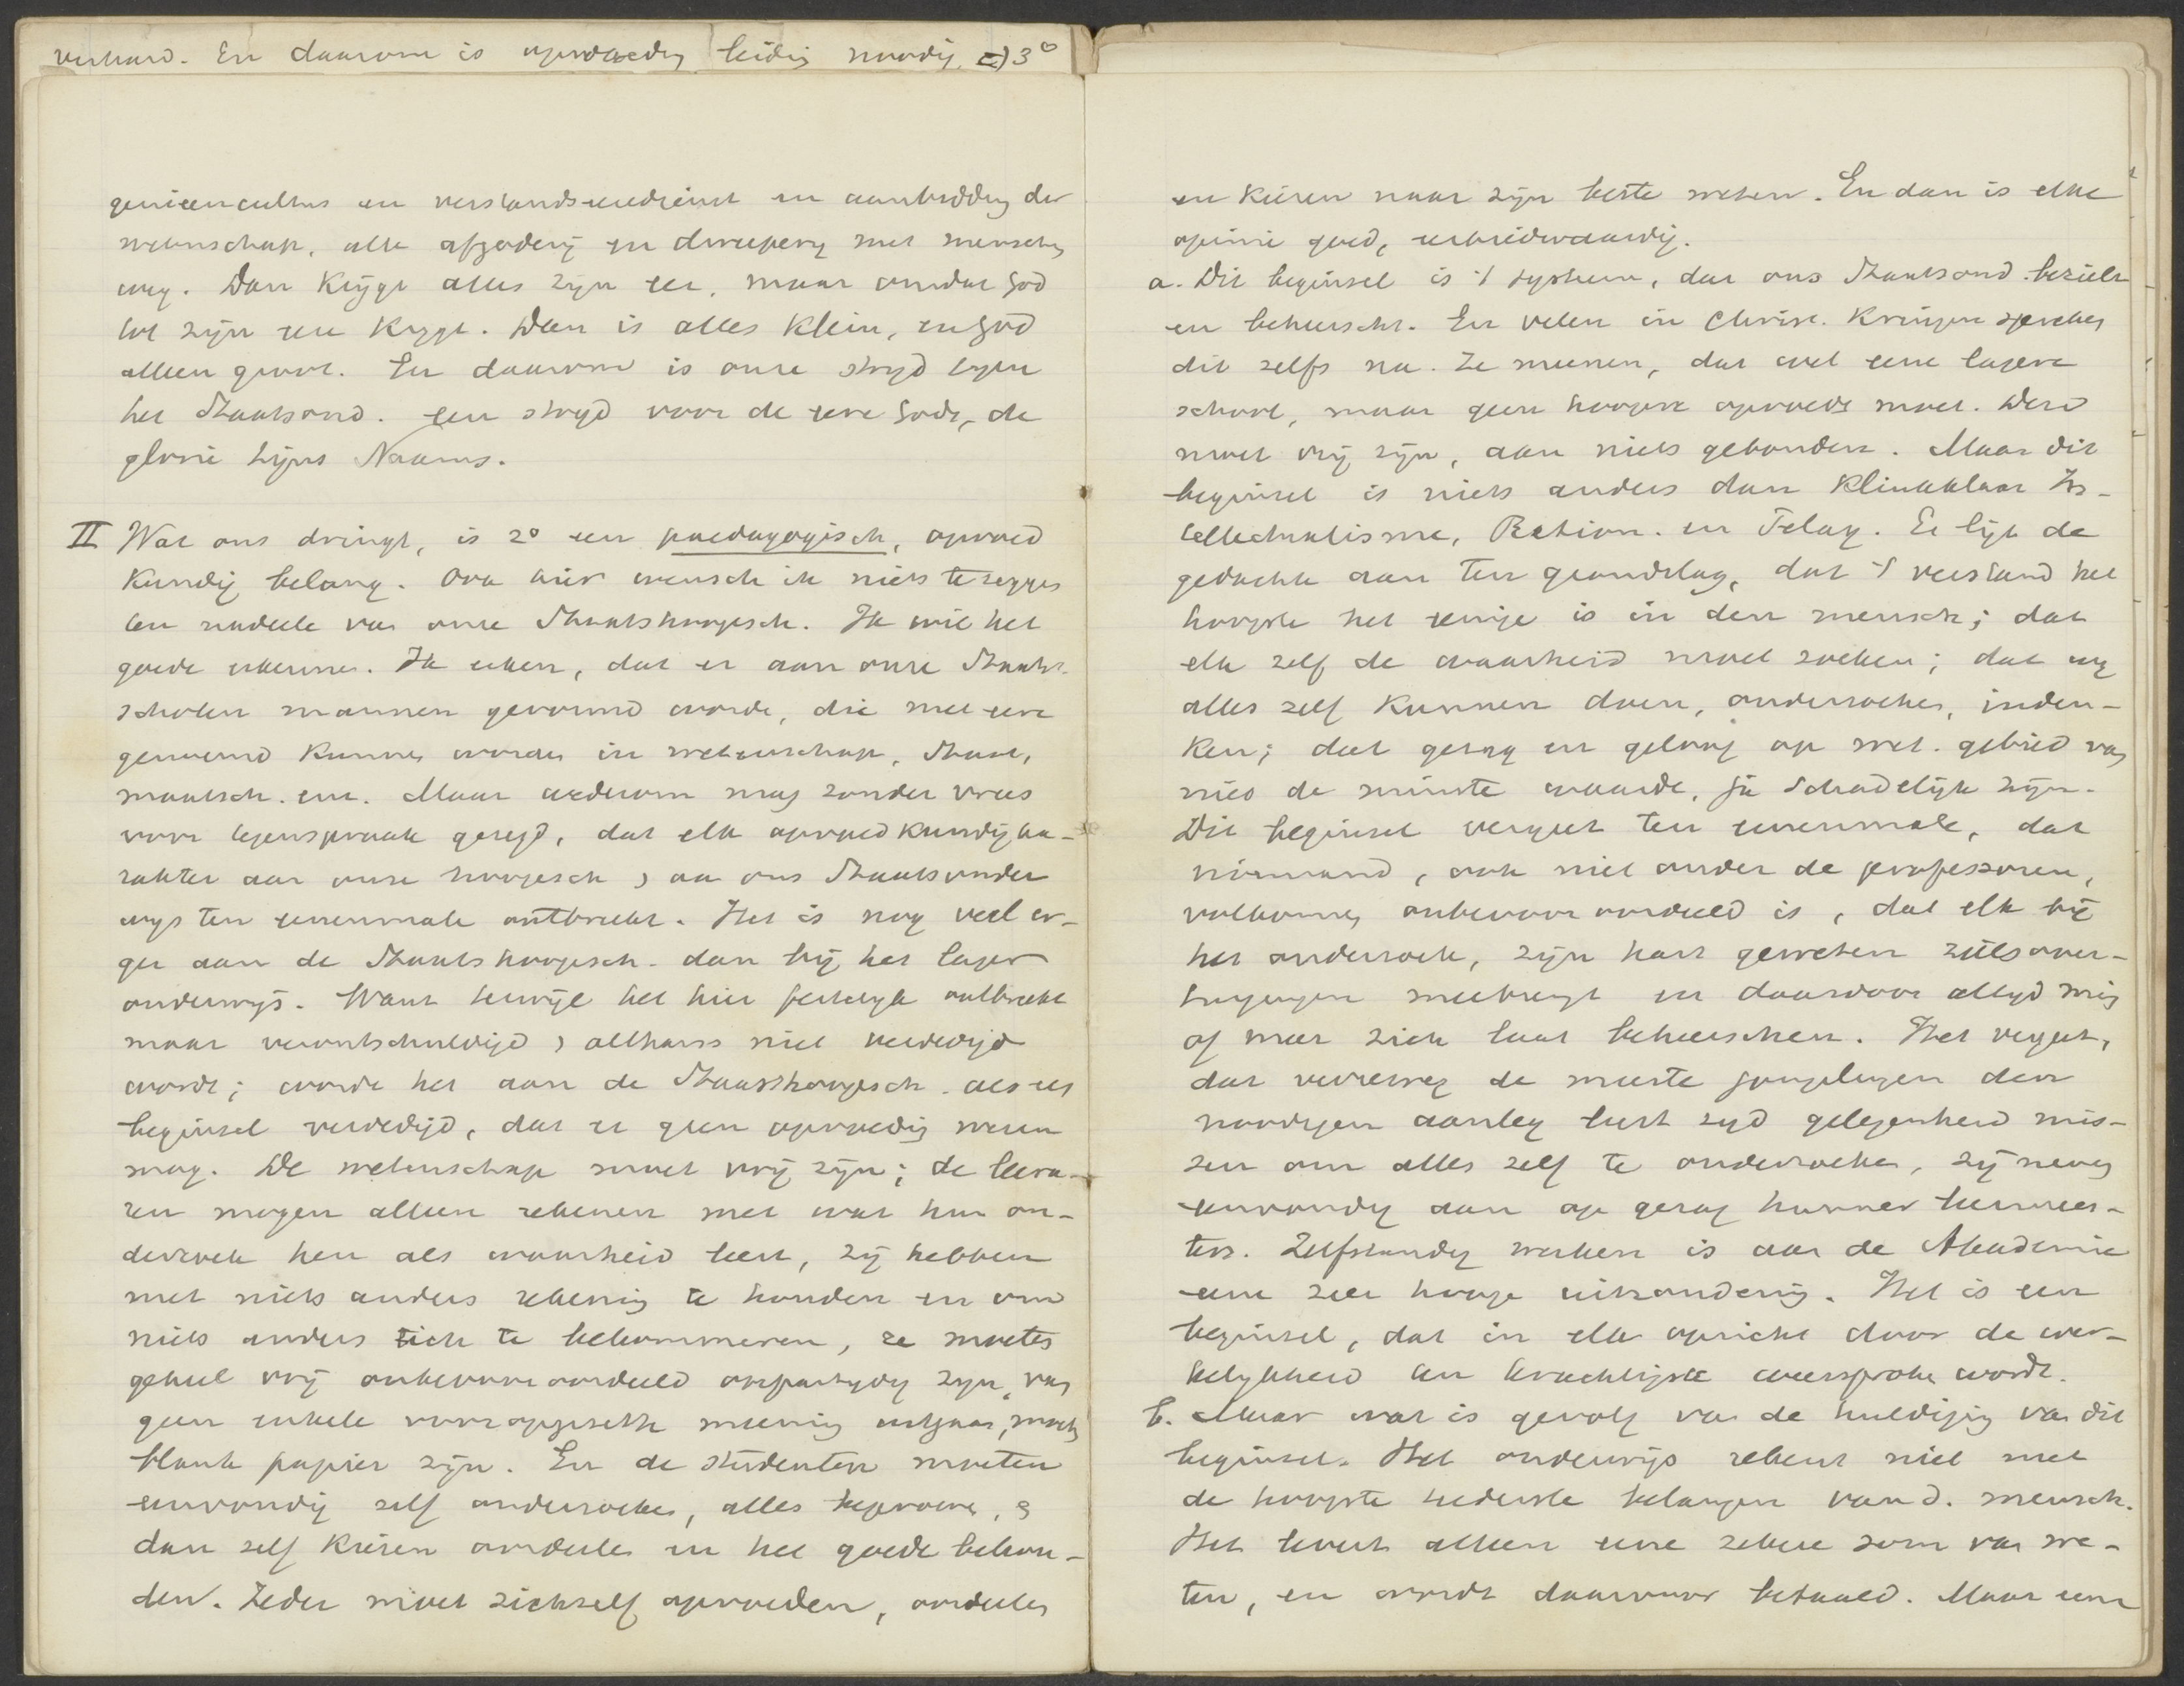 verhard. En daarom is opvoedg leidig noodig. c) 3°
genieencultus en verstandsvereedienst en aanbiddg der
wetenschap, alle afgoderij en dweepery met menschen
weg. Dan krijgt alles zijn eer, maar omdat God
tot zijn eer krygt. Dan is alles klein, en God
alleen groot. En daarom is onze stryd tegen
het Staatsond. een stryd voor de eere Gods, de
glorie Zijns Naams.
II Wat ons dringt, is 2° een paedagogisch, opvoed
kundig belang. Ook hier wensch ik niets te zeggen
ten nadeele van onze Staatshoogesch. Ik wil het
goede erkennen. Ik erken, dat er aan onze Staats-
scholen mannen gevormd worde, die met eere
genoemd kunnen worden in wetenschap, Staat,
maatsch. enz. Maar wederom mag zonder vrees
voor tegenspraak gezegd, dat elk opvoedkundig ka-
rakter aan onze hoogesch ) aan ons Staatsonder
wys ten eenenmale ontbreekt. Het is nog veel er-
ger aan de Staatshoogesch. dan bij het lager
onderwijs. Want terwijl het hier feitelyk ontbreekt
maar verontschuldigd ) althans niet verdedigd
wordt; wordt het aan de Staatshoogesch. als een
beginsel verdedigd, dat er geen opvoedig wezen
mag. De wetenschap moet vrij zijn; de leera-
ren mogen alleen rekenen met wat hun on-
derzoek hen als waarheid leert, zij hebben
met niets anders rekenig te houden en om
niets anders zich te bekommeren, ze moeten
geheel vrij onbevooroordeeld onpartydig zyn, van
geen enkele vooropgezette meenig uitgaan, moet
blank papier zijn. En de studenten moeten
eenvoudig zelf onderzoeken, alles beproeve, &
dan zelf kiezen oordeelen en het goede behou-
den. Ieder moet zichzelf opvoeden, oordeelen
en kiezen naar zijn beste weten. En dan is elke
opinie goed, eerbiedwaardig.
a. Dit beginsel is 't systeem, dat ons Staatsond. bezielt
en beheerscht. En velen in Christ. kringen spreken
dit zelfs na. Ze meenen, dat wel eene lagere
school, maar geen hoogere opvoede moet. Deze
moet vrij zijn, aan niets gebonden. Maar dit
beginsel is niets anders dan klinkklaar In-
tellectualisme, Ration. en Pelag. Er ligt de
gedachte aan ten grondslag, dat 't verstand het
hoogste het eenige is in den mensch; dat
elk zelf de waarheid moet zoeken; dat wy
alles zelf kunnen doen, onderzoeken, inden-
ken; dat gezag en geloof op wet. gebied van
niet de minste waarde, ja schadelijk zijn.
Dit beginsel vergeet ten eenenmale, dat
niemand, ook niet onder de professoren,
volkomen onbevooroordeeld is, dat elk bij
het onderzoek, zijn hart geweten zielsover-
tuigingen meebrengt en daardoor altyd min
of meer zich laat beheerschen. Het vergeet,
dat verreweg de meeste jongelingen den
noodigen aanleg lust tyd gelegenheid mis-
sen om alles zelf te onderzoeken, zij nemen
eenvoudig aan op gezag hunner leermees-
ters. Zelfstandig werken is aan de Akademie
eene zeer hooge uitzonderig. Het is een
beginsel, dat in elk opzicht door de wer-
kelykheid ten krachtigste weersproken wordt.
b. Maar wat is gevolg van de huldigig van dit
beginsel. Het onderwijs rekent niet met
de hoogste teederste belangen van d. mensch.
Het levert alleen eene zekere som van we-
ten, en wordt daarvoor betaald. Maar eene